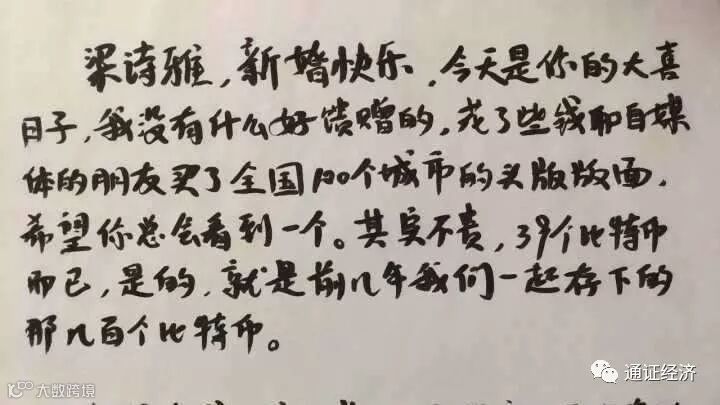 梁诗雅，新婚快乐，今天是你的大喜
日子，我没有什么好馈赠的，花了些钱和自媒
体的朋友买了全国100个城市的头版版面，
希望你总会看到一个。其实不贵，39个比特币
而已，是的，就是前几年我们一起存下的
那几百个比特币。
大数跨境
通证经济